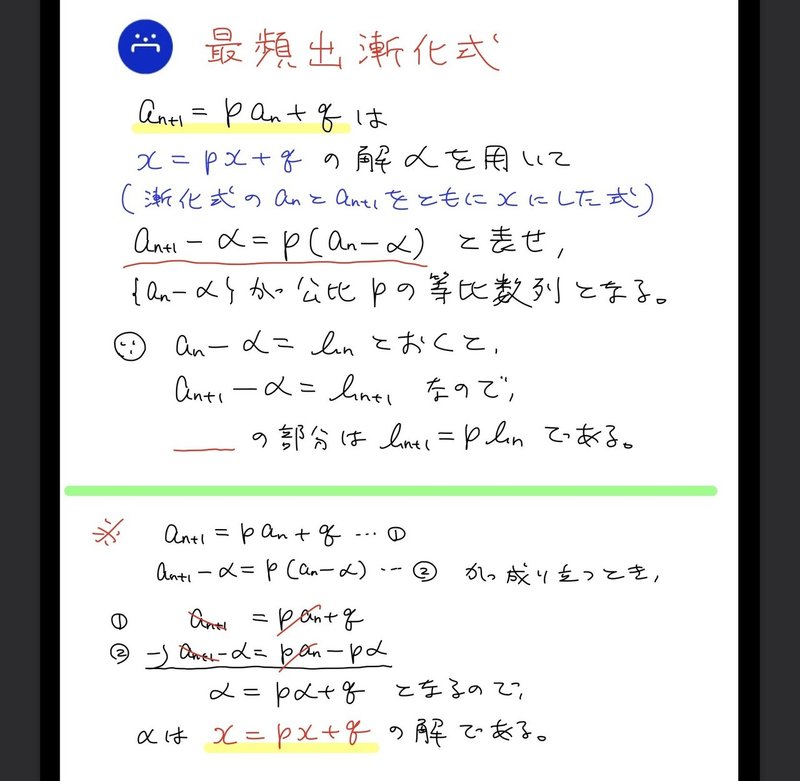 最頻出漸化式
aₙ₊₁ = p aₙ + q は
x = px + q の解 α を用いて
(漸化式の aₙ と aₙ₊₁ をともに x にした式)
aₙ₊₁ - α = p(aₙ - α) と表せ,
{aₙ - α} が公比 p の等比数列となる。
aₙ - α = bₙ とおくと,
aₙ₊₁ - α = bₙ₊₁ なので,
の部分は bₙ₊₁ = p bₙ である。
※ aₙ₊₁ = p aₙ + q … ①
aₙ₊₁ - α = p(aₙ - α) … ② が成り立つとき,
① aₙ₊₁ = p aₙ + q
② -) aₙ₊₁ - α = p aₙ - pα
α = pα + q となるので,
α は x = px + q の解である。